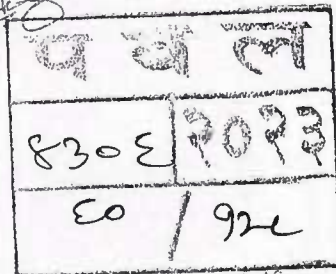 प वे ल
४३०६ २०१३
६० / १२८